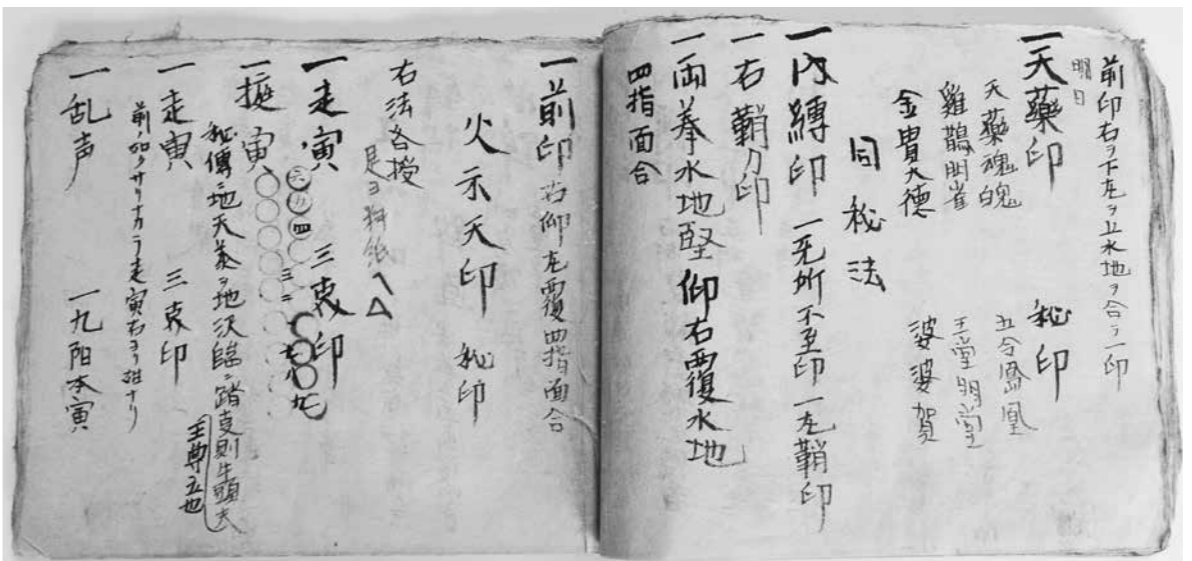 前印右ヲ下左ヲ上水地ヲ合テ一印
明日
一天藥印 秘印
天藥魂魄 五令鳳凰
雞鵲朋雀 王堂明堂
金貴大德 婆婆賀
同秘法
一内縛印 一无所不至印 一左鞘印
一右鞘刀印
一両拳水地竪仰右覆水地
四指面合
一前印右仰左覆四指面合
火示天印 秘印
右法各授
是ヲ料紙
一走寅 三衷印
六 八 四 三 二 七 八 九
一擬寅
秘傳ニ地天蓋ヲ地次臨踏支則牛頭天
王尊五也
一走寅 三衷印
前ノ如クサリナカラ走寅右ヨリ始ナリ
一乱声 一九陽本寅